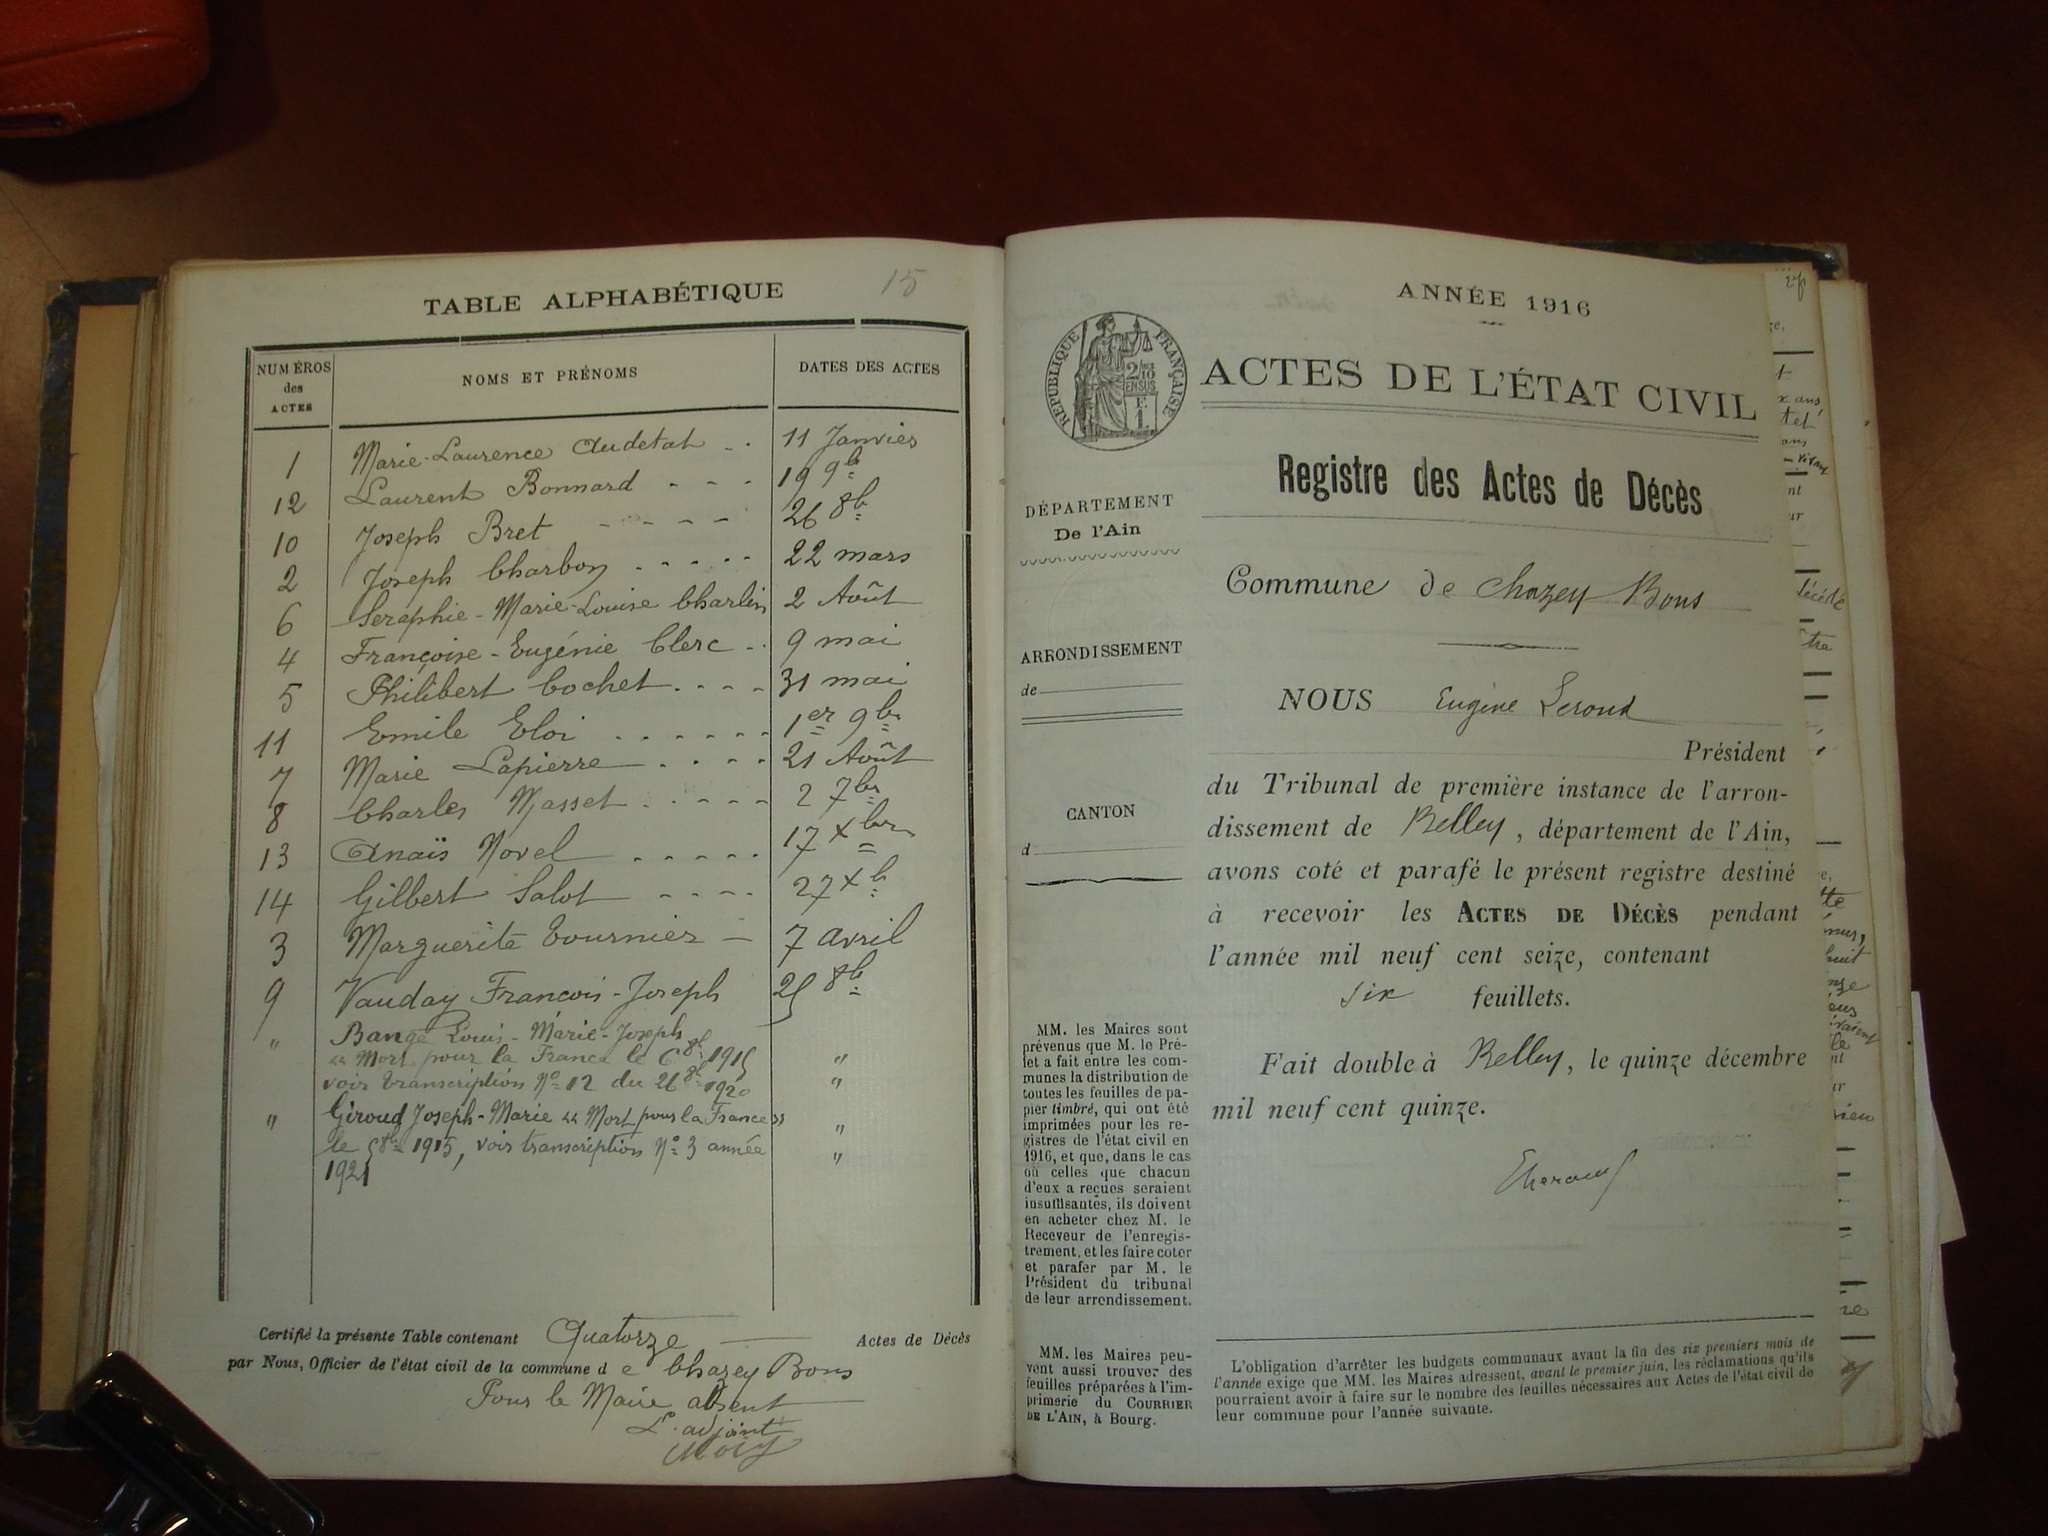 TABLE ALPHABÉTIQUE
15
NUMÉROS des ACTES NOMS ET PRÉNOMS DATES DES ACTES
1 Marie-Laurence Audetat 11 Janvier
12 Laurent Bonnard 19 9b
10 Joseph Bret 26 8b
2 Joseph Charbon 22 mars
6 Seraphie-Marie-Louise Charlin 2 Août
4 Françoise-Eugénie Clerc 9 mai
5 Philibert Cochet 31 mai
11 Emile Eloi 1er 9b
7 Marie Lapierre 21 Août
8 Charles Masset 2 7br
13 Anaïs Novel 17 Xbre
14 Gilbert Salot 27 Xb
3 Marguerite Tournier 7 avril
9 Vauday François-Joseph 25 8b
" Bange Louis-Marie-Joseph
"Mort pour la France le 6 8b 1915 "
voir transcription No 12 du 26 8b 1920 "
" Giroud Joseph-Marie "Mort pour la France" "
le 5 8b 1915, voir transcription No 3 année "
1921
Certifié la présente Table contenant Quatorze Actes de Décès
par Nous, Officier de l'état civil de la commune de Chazey Bons
Pour le Maire absent
L'adjoint
ANNÉE 1916
RÉPUBLIQUE FRANÇAISE
ACTES DE L'ÉTAT CIVIL
Registre des Actes de Décès
DÉPARTEMENT
De l'Ain
Commune de Chazey Bons
ARRONDISSEMENT
de
NOUS Eugène Leroud
Président
du Tribunal de première instance de l'arron-
CANTON
d
dissement de Belley, département de l'Ain,
avons coté et parafé le présent registre destiné
à recevoir les ACTES DE DÉCÈS pendant
l'année mil neuf cent seize, contenant
six feuillets.
Fait double à Belley, le quinze décembre
mil neuf cent quinze.
MM. les Maires sont
prévenus que M. le Pré-
fet a fait entre les com-
munes la distribution de
toutes les feuilles de pa-
pier timbré, qui ont été
imprimées pour les re-
gistres de l'état civil en
1916, et que, dans le cas
où celles que chacun
d'eux a reçues seraient
insuffisantes, ils doivent
en acheter chez M. le
Receveur de l'enregis-
trement, et les faire coter
et parafer par M. le
Président du tribunal
de leur arrondissement.
MM. les Maires peu-
vent aussi trouver des
feuilles préparées à l'im-
primerie du COURRIER
DE L'AIN, à Bourg.
L'obligation d'arrêter les budgets communaux avant la fin des six premiers mois de
l'année exige que MM. les Maires adressent, avant le premier juin, les réclamations qu'ils
pourraient avoir à faire sur le nombre des feuilles nécessaires aux Actes de l'état civil de
leur commune pour l'année suivante.